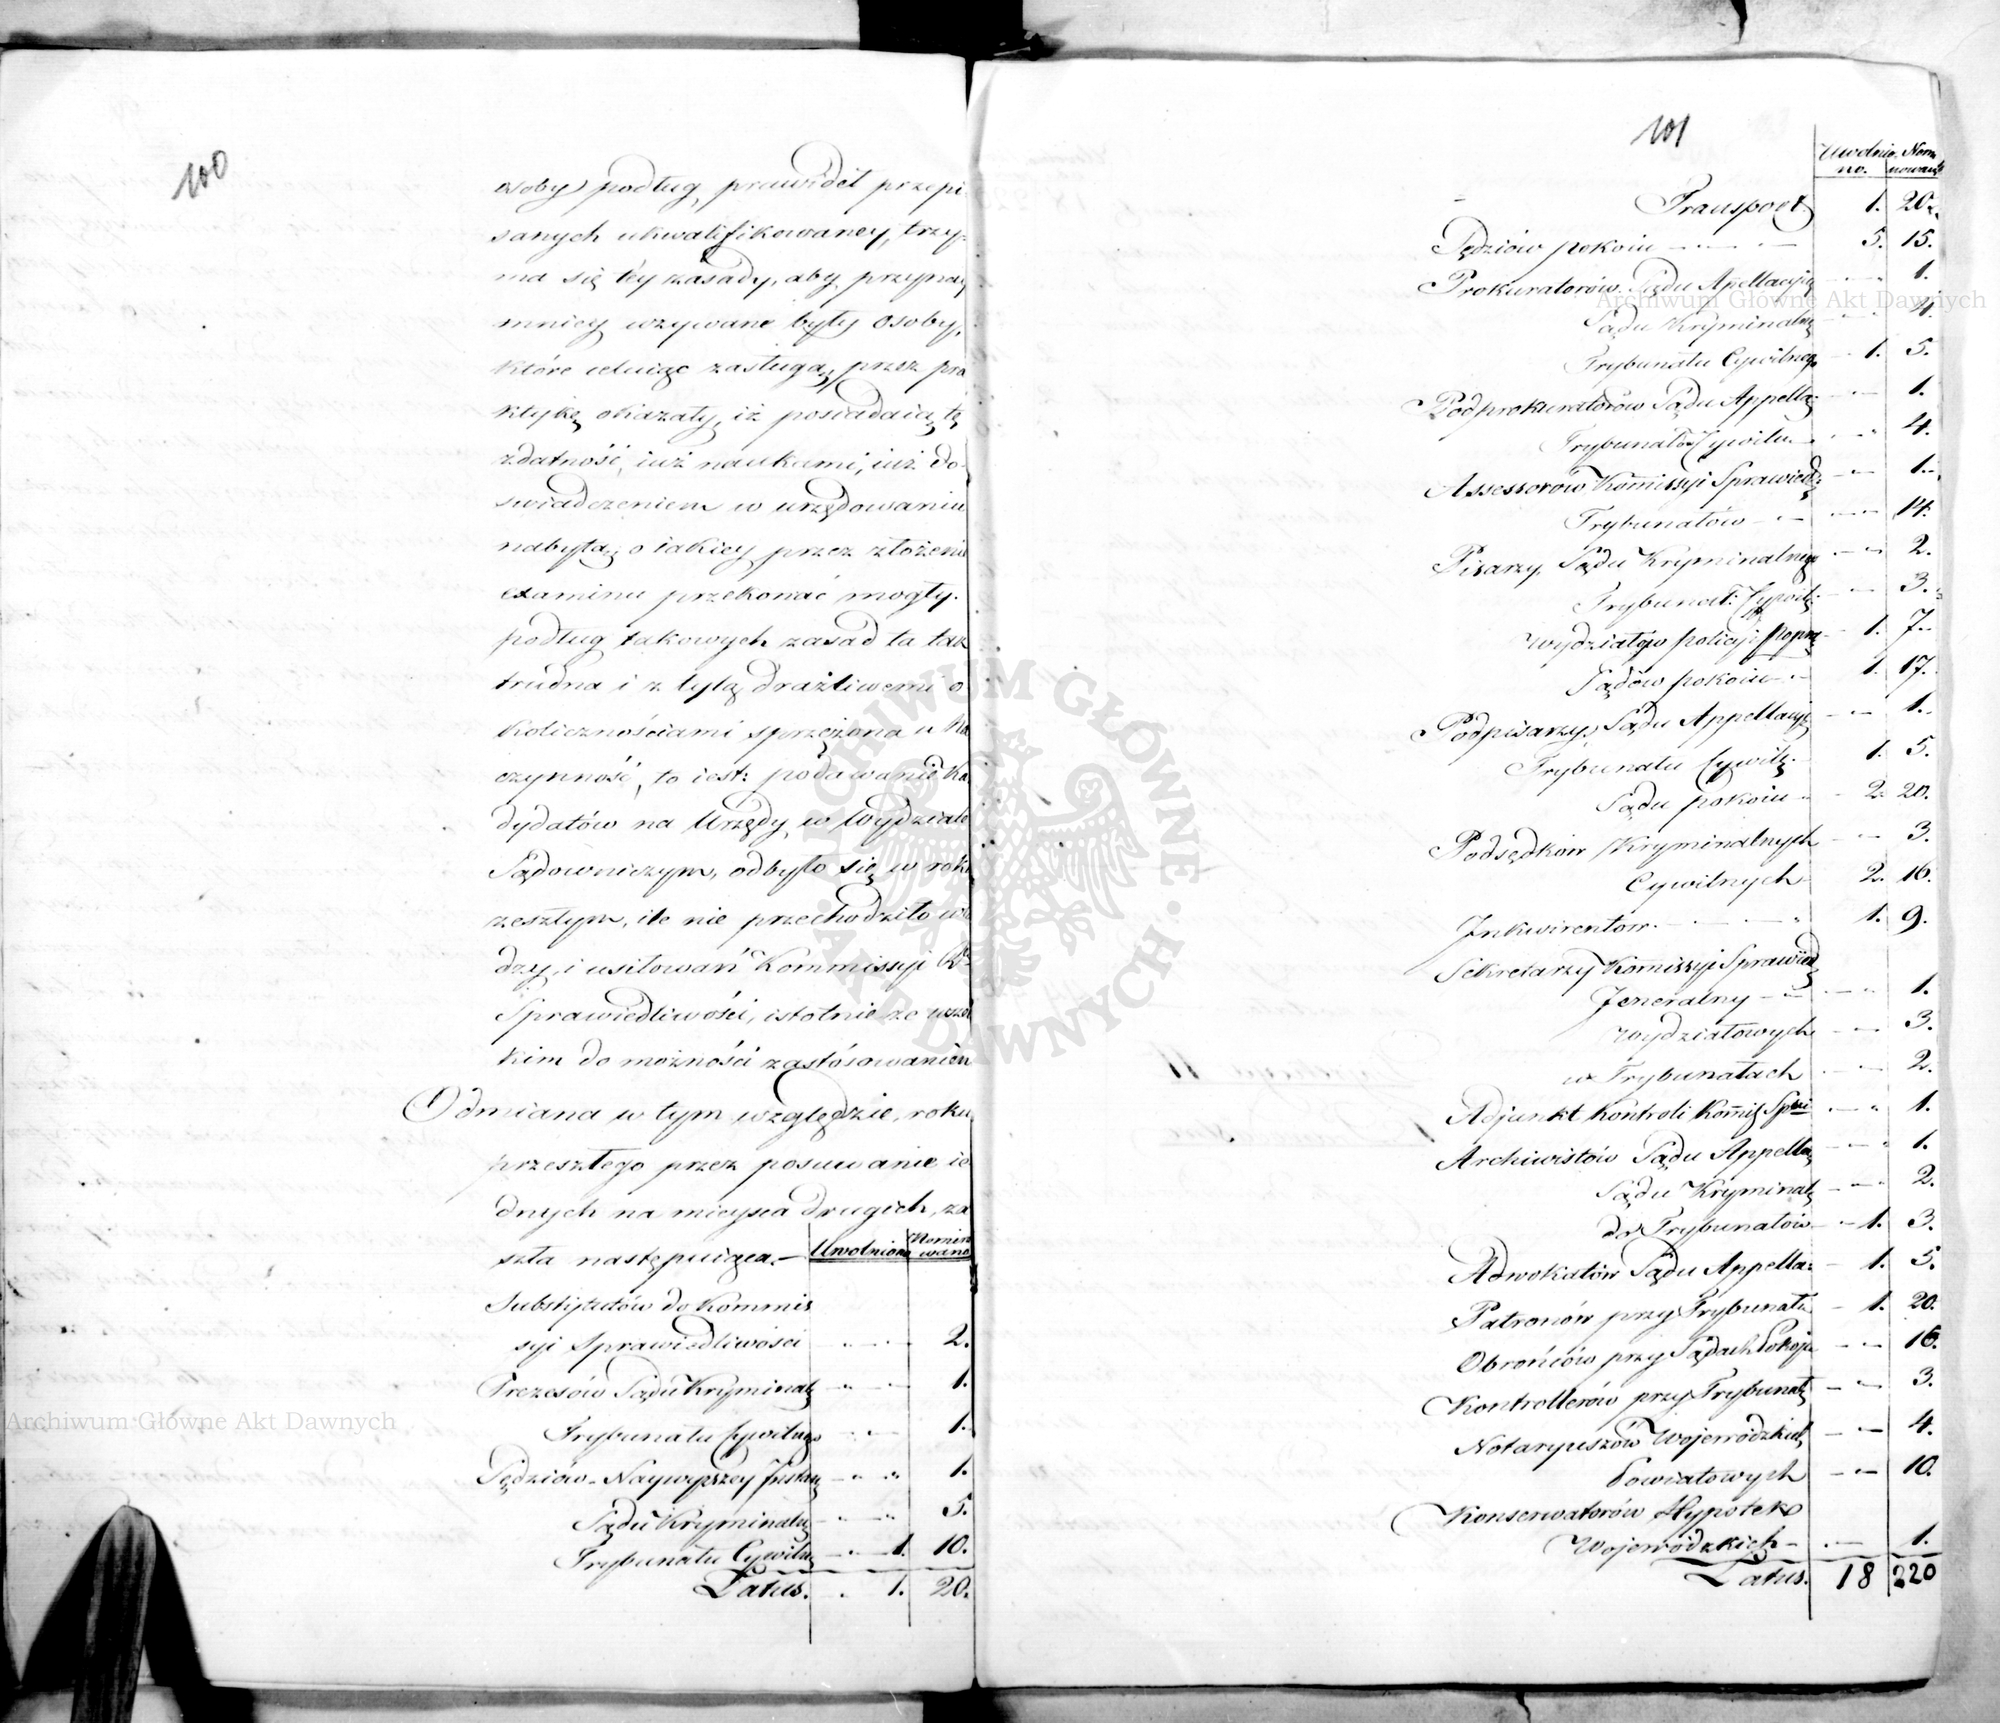 100
osoby podług prawideł przepi
sanych ukwalifikowaney, trzy-
ma się tey zasady, aby przynay
mniey wzywane były osoby,
które celuiąc zasługą, przez pra
ktykę okazały, iż posiadaią tę
zdatność, iuż naukami, iuż do-
swiadczeniem w urzędowaniu
nabytą, o iakiey przez złożenie
examinu przekonać mogły.
podług takowych zasad ta tak
trudna i z tylą drażliwemi o
kolicznościami sprzężona
czynność, to iest: podawanie Ka
dydatów na Urzędy w Wydziale
Sądowniczym, odbyło się w roku
zeszłym, ile nie przechodziło wła
dzy i usiłowań Kommissyi
Sprawiedliwości, istotnie ze wszel
kim do możności zastósowaniem
Odmiana w tym względzie, roku
przeszłego przez posuwanie ie
dnych na mieysca drugich, za
szła następuiąca.— Uwolniono Nomino
wano
Substytutów do Kommis
syi Sprawiedliwości 2.
Prezesów Sądu Kryminal 1.
Trybunału Cywilnego 1.
Sędziów Naywyższey Instan 1.
Sądu Kryminaln 5.
Trybunału Cywiln 1. 10.
Latus. 1. 20.
101
Uwolnio Nomi
no. nowano
Transport 1. 20.
Sędziów pokoiu 5. 15.
Prokuratorów Sądu Apellacyi 1.
Sądu Kryminaln 4.
Trybunału Cywilneg 1. 5.
Podprokuratorów Sądu Appella 1.
Trybunałów Cywiln. 4.
Assessorów Kommissyi Sprawied 1.
Trybunałów 14.
Pisarzy Sądu Kryminalnego 2.
Trybunał: Cywil: 3.
Wydziałów policyi Popra 1. 7.
Sądów pokoiu 1. 17.
Podpisarzy Sądu Appellacyi 1.
Trybunału Cywil. 1. 5.
Sądu pokoiu 2. 20.
Podsędków Kryminalnych 3.
Cywilnych 2. 16.
Inkwirentów. 1. 9.
Sekretarzy Kommissyi Sprawied
Jeneralny 1.
Wydziałowych 3.
w Trybunałach 2.
Adjunkt Kontroli Kommis Sprai 1.
Archiwistów Sądu Appella 1.
Sądu Kryminal 2.
do Trybunałów 1. 3.
Adwokatów Sądu Appella: 1. 5.
Patronów przy Trybunał 1. 20.
Obrońców przy Sądach Pokoju 16.
Kontrollerów przy Trybunał 3.
Notaryuszów Wojewódzkich 4.
Powiatowych 10.
Konserwatorów Hypotek
Wojewódzkich 1.
Latus. 18 220
Archiwum Główne Akt Dawnych
Archiwum Główne Akt Dawnych
ARCHIWUM GŁÓWNE · AKT DAWNYCH ·